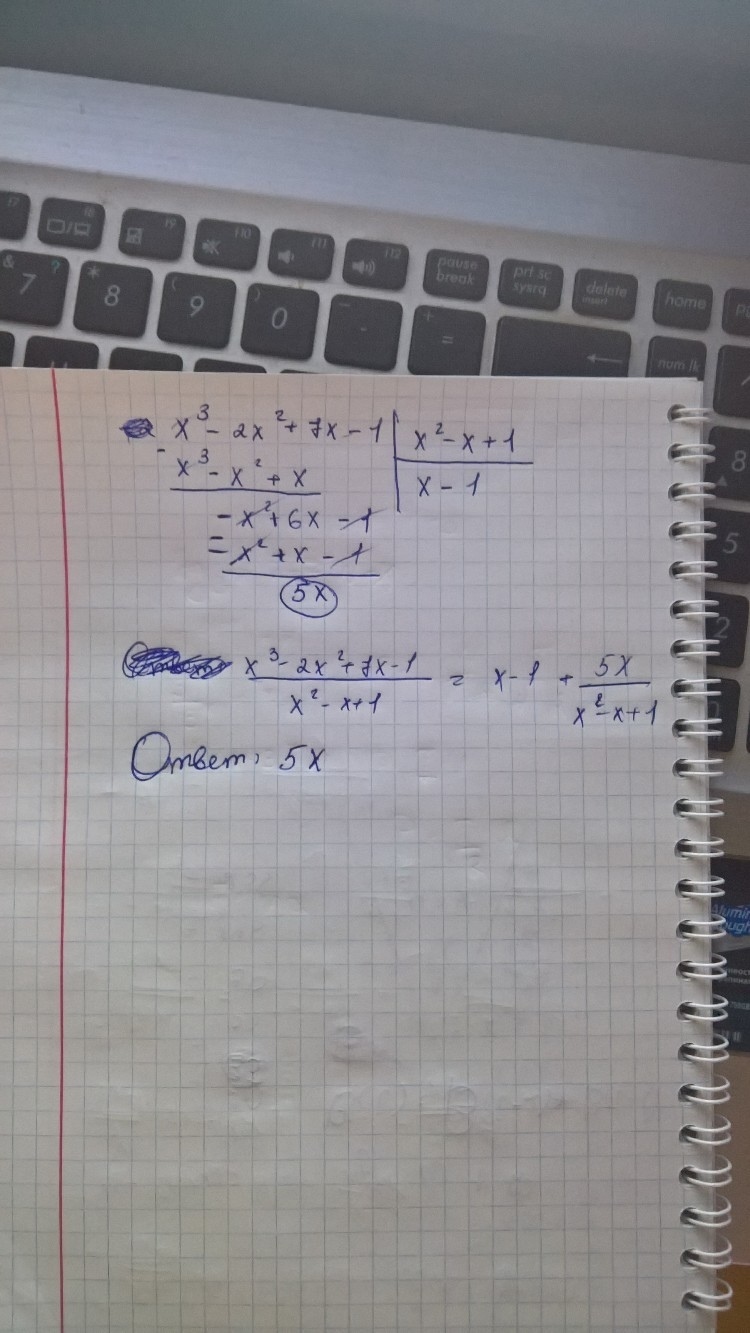 f7 f8 f9 f10 f11 f12 pause break prt sc sysrq delete insert home
& 7 ? * 8 ( 9 ) 0 _ - + = ← num lk
x³ - 2x² + 7x - 1 | x² - x + 1
- x³ - x² + x | x - 1
- x² + 6x - 1
= x² + x - 1
5x
x³ - 2x² + 7x - 1 / x² - x + 1 = x - 1 + 5x / x² - x + 1
Ответ: 5x
8
5
2